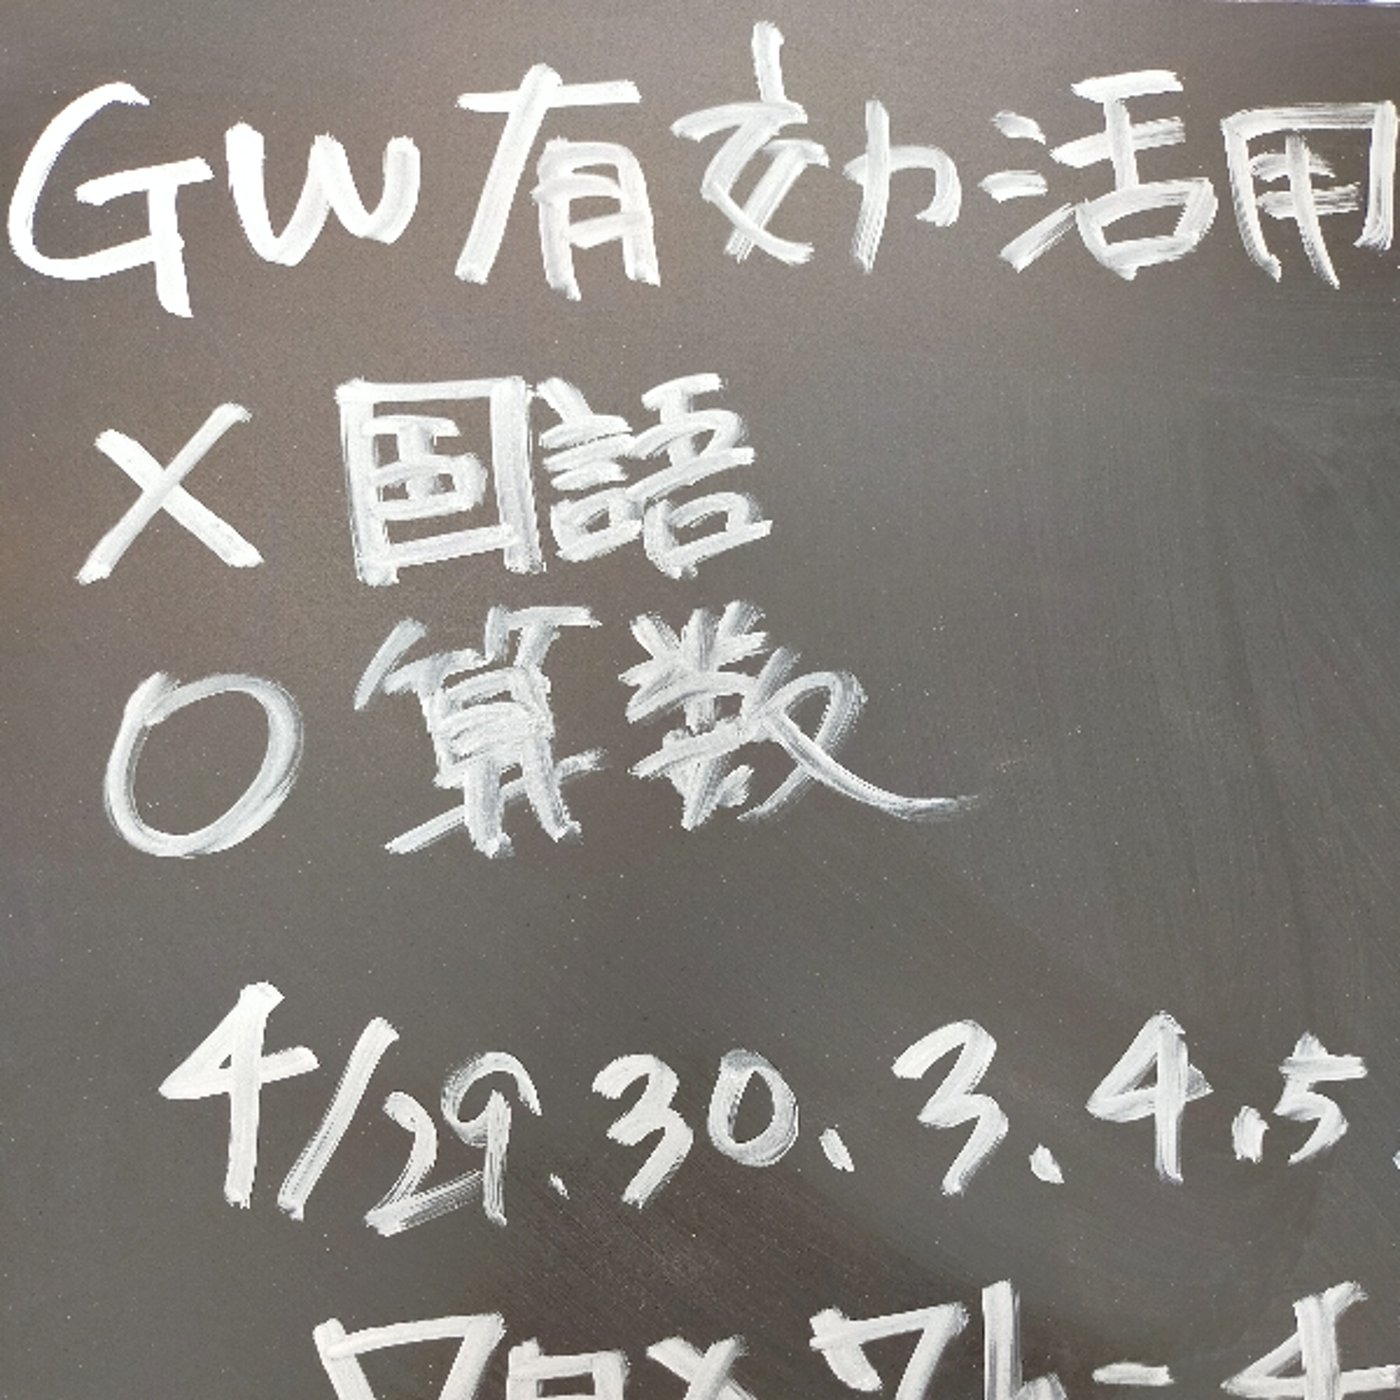 GW有効活用
×国語
○算数
4/29.30、3、4、5